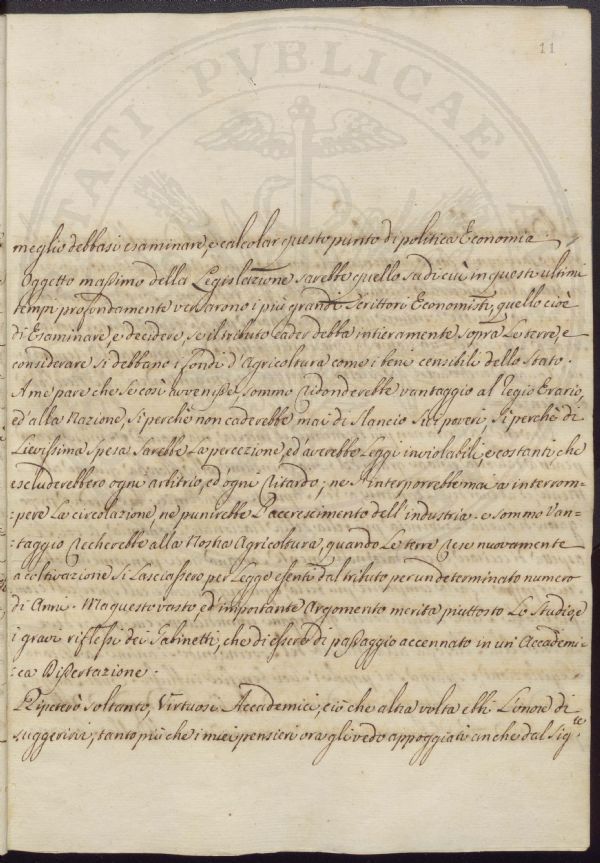 11
TATI PVBLICAE
meglio debbasi esaminare, e calcolar questo punto di politica Economia.
Oggetto massimo della Legislazione sarebbe quello su di cui in questi ultimi
tempi profondamente versarono i più grandi Scrittori Economisti, quello cioè
di Esaminare, e decidere, se il tributo cader debba intieramente sopra Le terre, e
considerare si debbano i fondi d'Agricoltura come i beni censibili dello stato.
A me pare che se così avvenisse, sommo ridonderebbe vantaggio al Regio Erario,
ed alla Nazione, sì perchè non caderebbe mai di slancio sui poveri, sì perchè di
Lievissima spesa sarebbe La percezione, ed averebbe Leggi inviolabili, e costanti che
escluderebbero ogni arbitrio, ed ogni ritardo; ne s'interporrebbe mai a interrom=
=pere La circolazione, ne punirebbe L'accrescimento dell'industria. e sommo Van=
=taggio recherebbe alla Nostra Agricoltura, quando Le terre rese nuovamente
a coltivazione si Lasciassero per Legge esenti dal tributo per un determinato numero
di Anni. Ma questo vasto, ed importante Argomento merita piuttosto Lo Studio, e
i gravi riflessi dei Gabinetti, che di essere di passaggio accennato in un' Accademi=
=ca Dissertazione.
Ripeterò soltanto, Virtuosi Accademici, ciò che altra volta ebbi L'onore di
suggerirvi, tanto più che i miei pensieri ora gli vedo appoggiati anche dal Sig.re